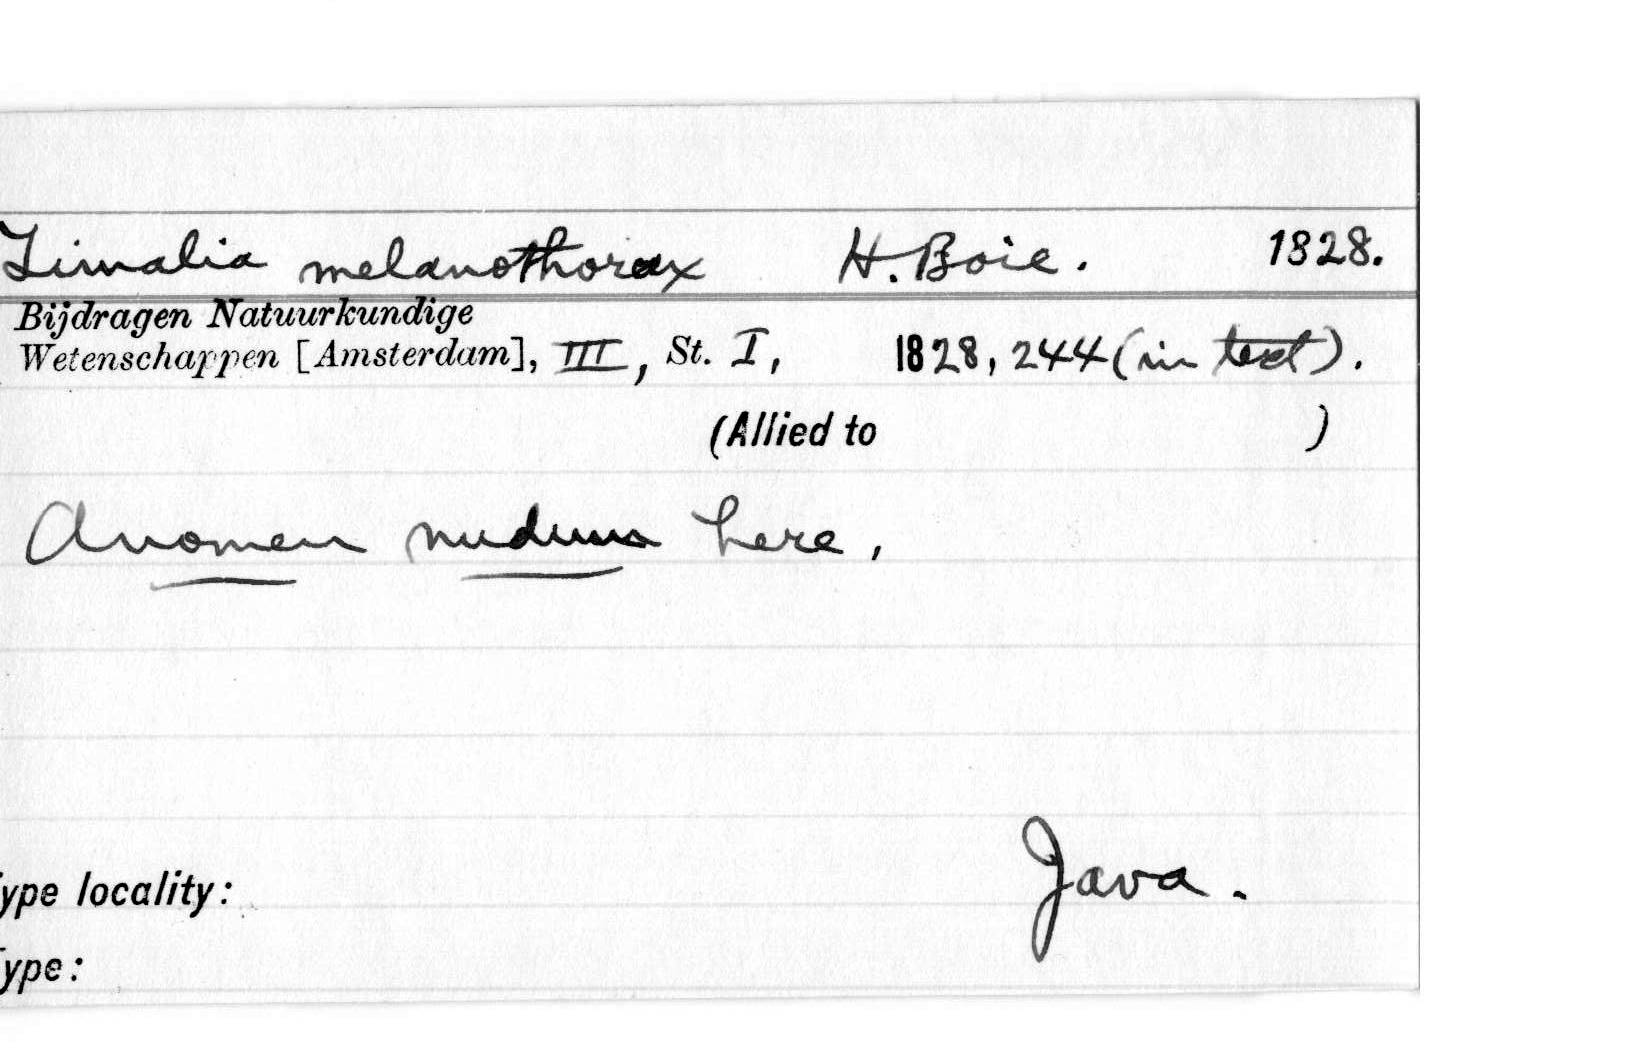 Timalia melanothorax H. Boie. 1828.
Bijdragen Natuurkundige
Wetenschappen [Amsterdam], III, St. I, 1828, 244 (in text).
(Allied to )
A nomen nudum here.
ype locality: Java.
ype: